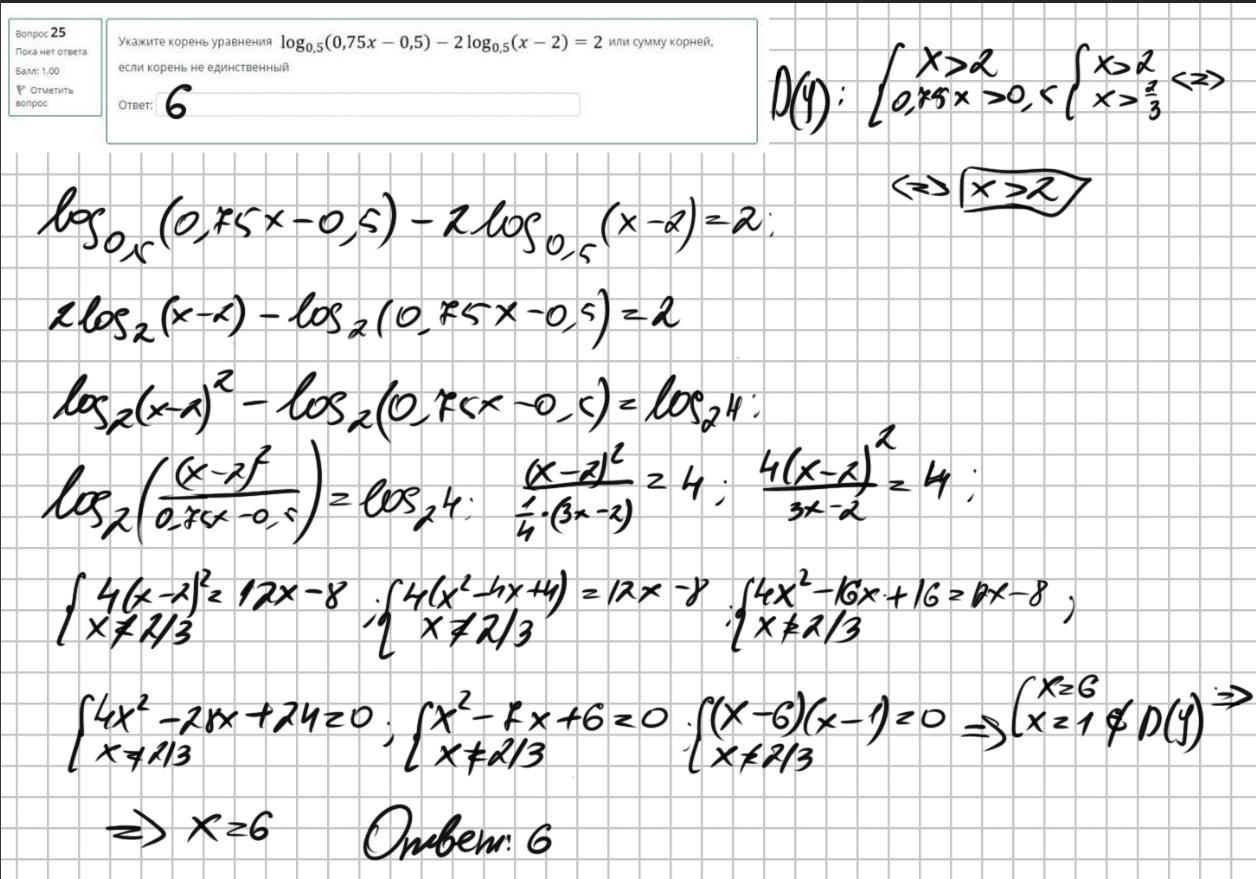 Вопрос 25
Пока нет ответа
Балл: 1,00
Отметить вопрос
Укажите корень уравнения log₀,₅(0,75x − 0,5) − 2 log₀,₅(x − 2) = 2 или сумму корней,
если корень не единственный
Ответ: 6
D(y): { x>2 { x>2 <=>
0,75x >0,5 x> 2/3
<=> x>2
log₀,₅(0,75x−0,5) − 2log₀,₅(x−2)=2;
2log₂(x−2) − log₂(0,75x−0,5)=2
log₂(x−2)² − log₂(0,75x−0,5)= log₂4;
log₂((x−2)²/(0,75x−0,5)) = log₂4; (x−2)²/(1/4·(3x−2)) = 4; 4(x−2)²/(3x−2) = 4;
{ 4(x−2)²= 12x−8 ; { 4(x²−4x+4) = 12x−8 ; { 4x²−16x+16=12x−8 ;
x≠2/3 x≠2/3 x≠2/3
{ 4x²−28x+24=0 ; { x²−7x+6=0 ; { (x−6)(x−1)=0 => [ x=6
x≠2/3 x≠2/3 x≠2/3 x=1 ∉ D(y) =>
=> x=6 Ответ: 6